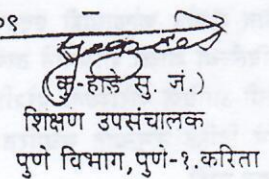 ०९
(कु-हाडे सु. जं.)
शिक्षण उपसंचालक
पुणे विभाग,पुणे-१.करिता